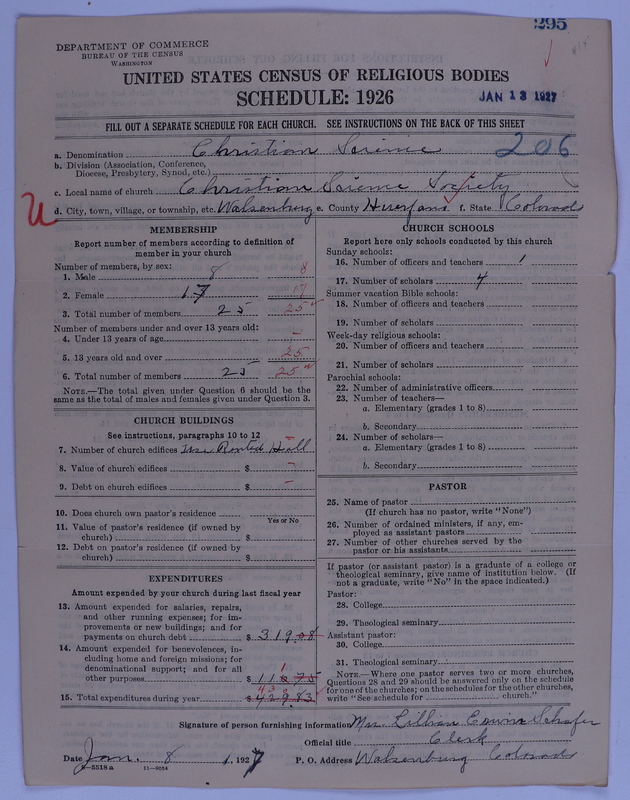 295
DEPARTMENT OF COMMERCE
BUREAU OF THE CENSUS
WASHINGTON
UNITED STATES CENSUS OF RELIGIOUS BODIES
SCHEDULE: 1926
JAN 13 1927
FILL OUT A SEPARATE SCHEDULE FOR EACH CHURCH. SEE INSTRUCTIONS ON THE BACK OF THIS SHEET
206
a. Denomination Christian Science
b. Division (Association, Conference,
Diocese, Presbytery, Synod, etc.)
c. Local name of church Christian Science Society
U
d. City, town, village, or township, etc. Walsenburg e. County Huerfano f. State Colorado
MEMBERSHIP
Report number of members according to definition of
member in your church
Number of members, by sex:
1. Male 8 8
2. Female 17 17
3. Total number of members 25 25
Number of members under and over 13 years old:
4. Under 13 years of age –
5. 13 years old and over 25
6. Total number of members 25 25
NOTE.—The total given under Question 6 should be the
same as the total of males and females given under Question 3.
CHURCH BUILDINGS
See instructions, paragraphs 10 to 12
7. Number of church edifices Use Rented Hall –
8. Value of church edifices $ –
9. Debt on church edifices $ –
10. Does church own pastor's residence
Yes or No
11. Value of pastor's residence (if owned by
church) $
12. Debt on pastor's residence (if owned by
church) $
EXPENDITURES
Amount expended by your church during last fiscal year
13. Amount expended for salaries, repairs,
and other running expenses; for im-
provements or new buildings; and for
payments on church debt $ 319.08
14. Amount expended for benevolences, in-
cluding home and foreign missions; for
denominational support; and for all
other purposes $ 110.75
15. Total expenditures during year $ 429.83
CHURCH SCHOOLS
Report here only schools conducted by this church
Sunday schools:
16. Number of officers and teachers 1
17. Number of scholars 4
Summer vacation Bible schools:
18. Number of officers and teachers
19. Number of scholars
Week-day religious schools:
20. Number of officers and teachers
21. Number of scholars
Parochial schools:
22. Number of administrative officers
23. Number of teachers—
a. Elementary (grades 1 to 8)
b. Secondary
24. Number of scholars—
a. Elementary (grades 1 to 8)
b. Secondary
PASTOR
25. Name of pastor
(If church has no pastor, write "None")
26. Number of ordained ministers, if any, em-
ployed as assistant pastors
27. Number of other churches served by the
pastor or his assistants
If pastor (or assistant pastor) is a graduate of a college or
theological seminary, give name of institution below. (If
not a graduate, write "No" in the space indicated.)
Pastor:
28. College
29. Theological seminary
Assistant pastor:
30. College
31. Theological seminary
NOTE.—Where one pastor serves two or more churches,
Questions 28 and 29 should be answered only on the schedule
for one of the churches; on the schedules for the other churches,
write "See schedule for church."
Signature of person furnishing information Mrs. Lillian Schafer
Official title Clerk
Date Jan. 8, 1927 P. O. Address Walsenburg Colorado
8—5518a 11—9054